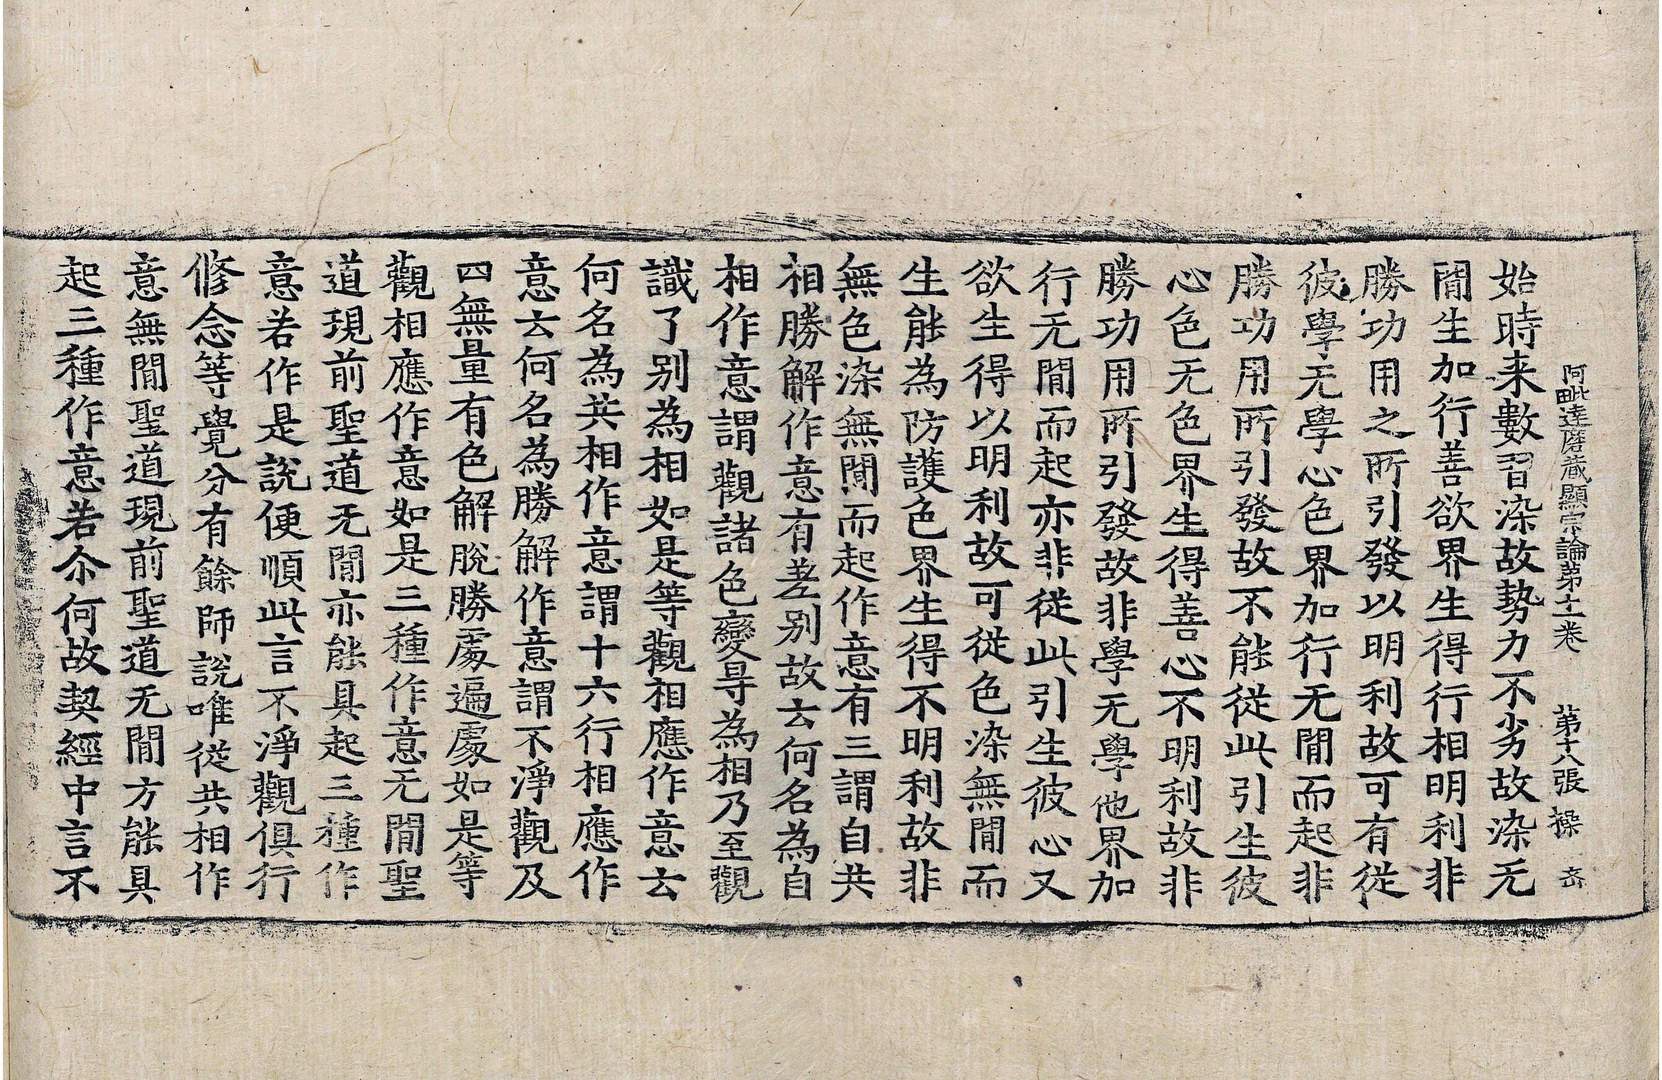 阿毗達磨藏顯宗論第十一卷 第十八張 操
始時来數習染故勢力不劣故染无
閒生加行善欲界生得行相明利非
勝功用之所引發以明利故可有從
彼學无學心色界加行无閒而起非
勝功用所引發故不能從此引生彼
心色无色界生得善心不明利故非
勝功用所引發故非學无學他界加
行无閒而起亦非從此引生彼心又
欲生得以明利故可從色染無閒而
生能為防護色界生得不明利故非
無色染無閒而起作意有三謂自共
相勝解作意有差别故云何名為自
相作意謂觀諸色變㝵為相乃至觀
識了别為相如是等觀相應作意云
何名為共相作意謂十六行相應作
意云何名為勝解作意謂不淨觀及
四無量有色解脫勝處遍處如是等
觀相應作意如是三種作意无閒聖
道現前聖道无閒亦能具起三種作
意若作是說便順此言不淨觀俱行
修念等覺分有餘師說唯從共相作
意無閒聖道現前聖道无閒方能具
起三種作意若尒何故契經中言不